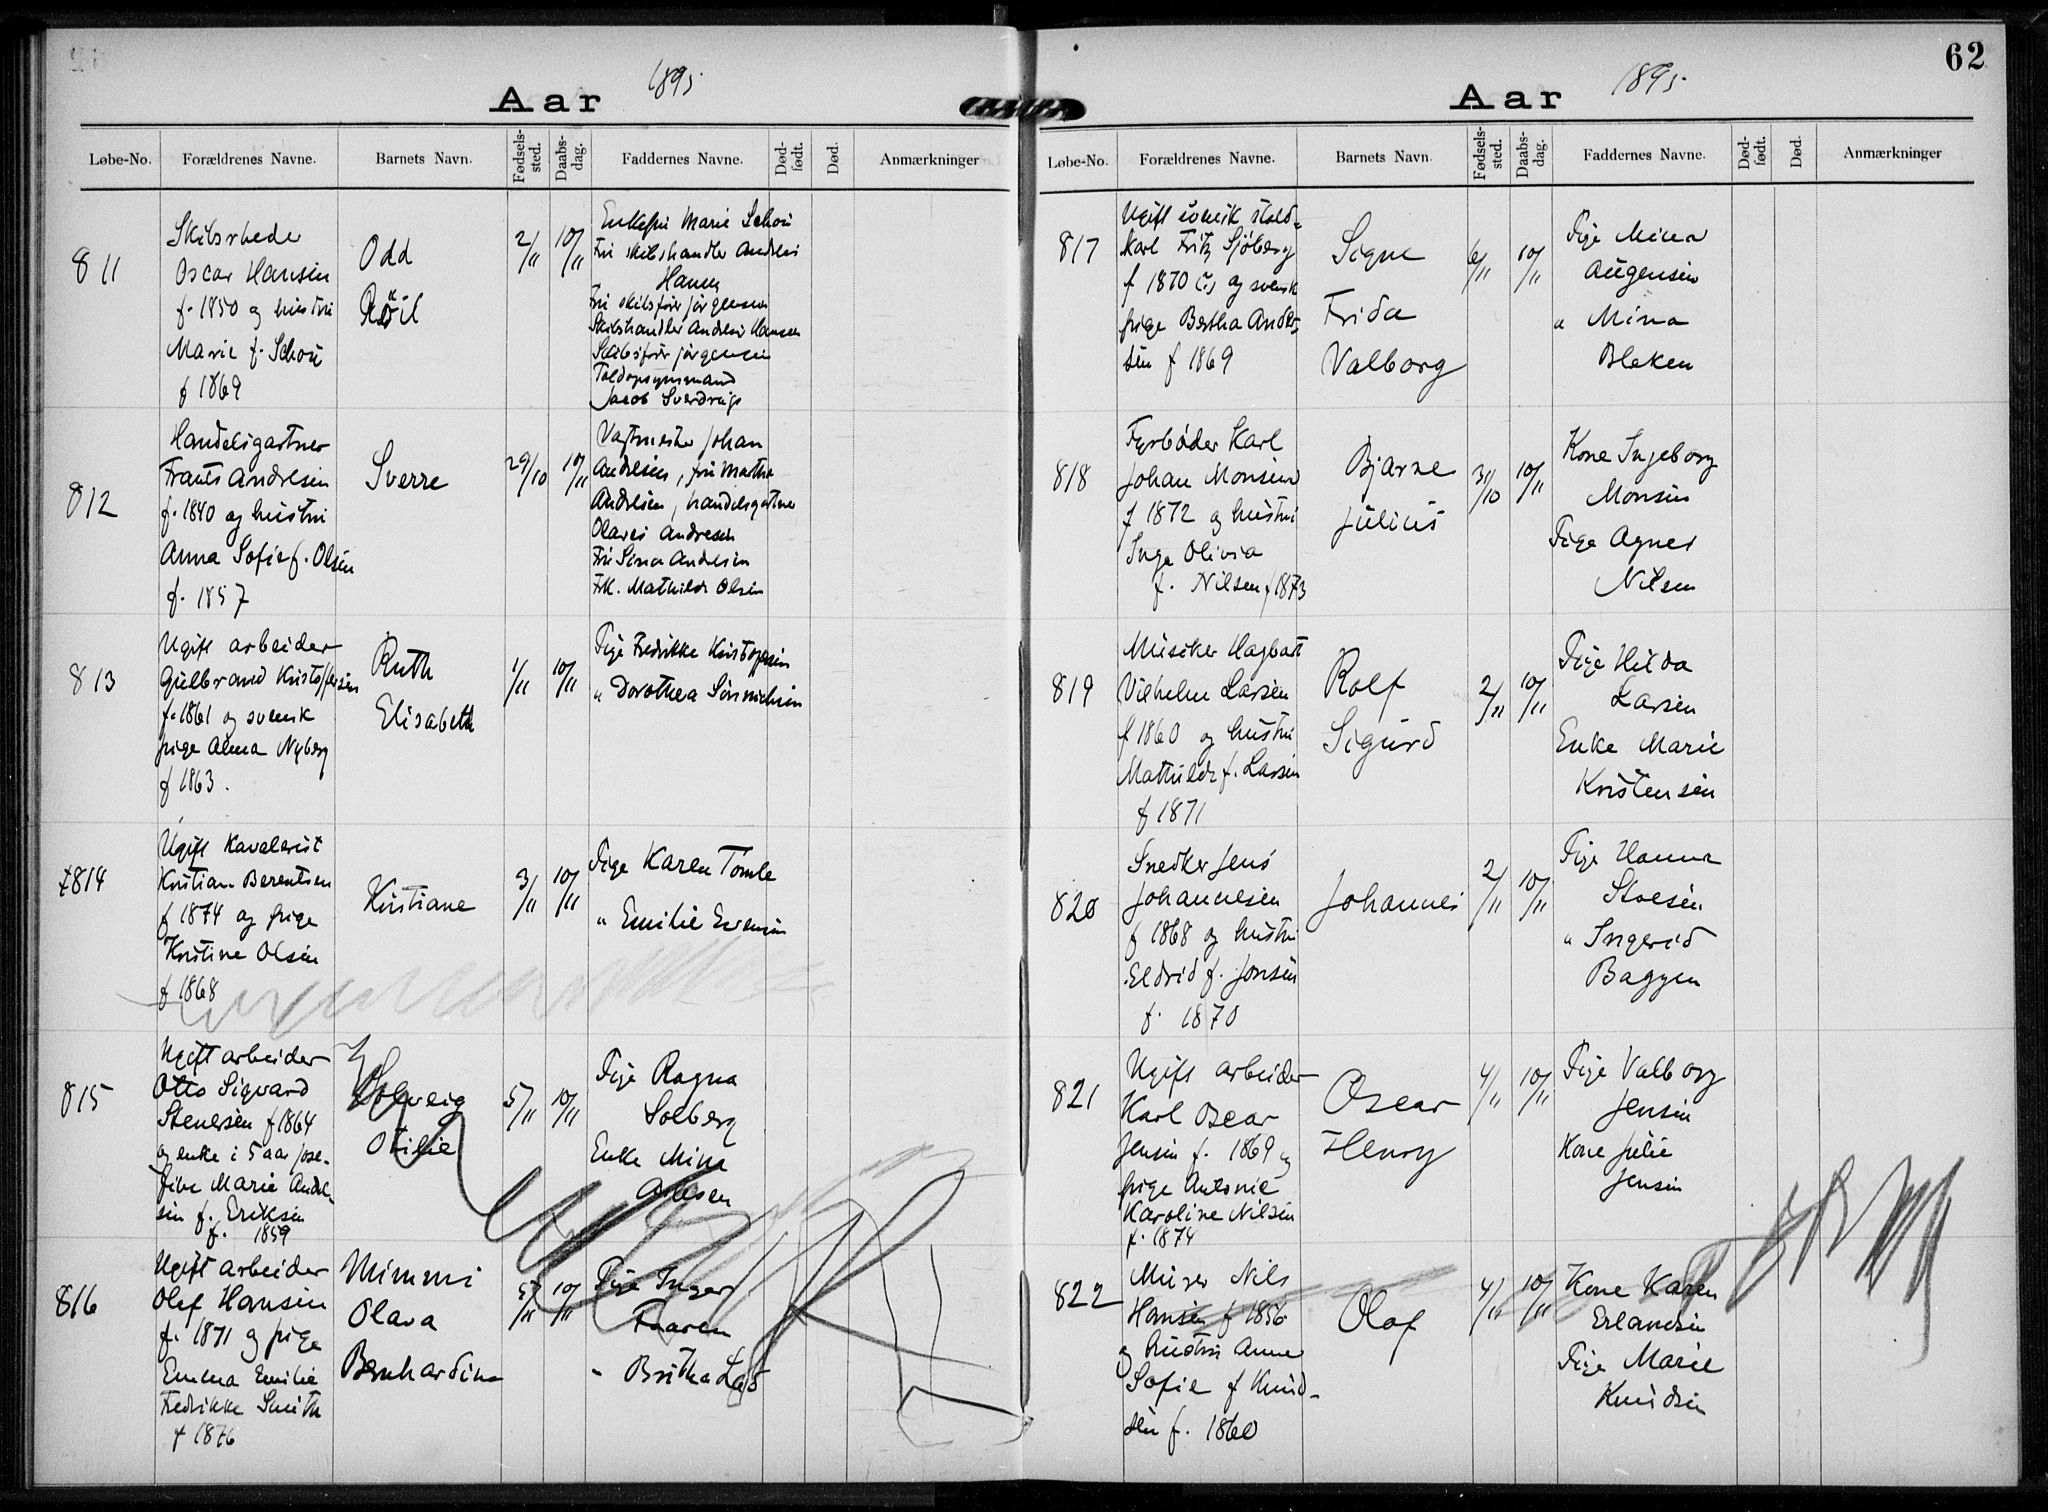 Aar 1895
Løbe-No. Forældrenes Navne. Barnets Navn. Fødsels-sted. Daabs-dag. Faddernes Navne. Død-født. Død. Anmærkninger
811
Skibsrheder
Oscar Hansen
f. 1850 og hustru
Marie f. Schou
f 1869
Odd
2/11 10/11
Enkefru Marie Schou
Fru skibshandler Andrea
Hansen
Fru skibsfører Jørgensen
Skibshandler Andreas Hansen
Skibsfører Jørgensen
Toldopsynsmand
Jacob Sverdrup
812
Handelsgartner
Frants Andresen
f. 1840 og hustru
Anna Sofie f. Olsen
f. 1857
Sverre
29/10 10/11
Vagtmester Johan
Andresen, fru Martha
Andresen, handelsgartner
Olaves Andresen
Fru Sina Andresen
Frk. Mathilde Olsen
813
Ugift arbeider
Gulbrand Kristoffersen
f. 1861 og svensk
pige Alma Nyberg
f 1863.
Ruth
Elisabeth
1/11 10/11
Pige Fredrikke Kristoffersen
" Dorothea Sønnichsen
814
Ugift Kavalerist
Kristian Berentsen
f 1874 og pige
Kristine Olsen
f 1868
Kristiane
3/11 10/11
Pige Karen Tomle
" Emilie Evensen
815
Ugift arbeider
Otto Sigvard
Stenersen f 1864
og enke i 5 aar Jose-
fine Marie Andre-
sen f. Eriksen
f. 1859
Solveig
Otilie
5/11 10/11
Pige Ragna
Solberg
Enke Mina
816
Ugift arbeider
Olef Hansen
f. 1871 og pige
Emma Emilie
Fredrikke Smith
f 1876
Mimmi
Olava
Bernhardine
5/11 10/11
Pige Inger
Faaren
" Britha Løs
62
Aar 1895
Løbe-No. Forældrenes Navne. Barnets Navn. Fødsels-sted. Daabs-dag. Faddernes Navne. Død-født. Død. Anmærkninger
817
Ugift svensk stald-
karl Fritz Sjöberg
f 1870 og svensk
pige Bertha Ander-
sen f 1869
Signe
Frida
Valborg
6/11 10/11
Pige Mina
Augensen
" Mina
Bleken
818
Fyrbøder Karl
Johan Monsen
f 1872 og hustru
Inga Olivia
f. Nilsen f 1873
Bjarne
Julius
31/10 10/11
Kone Ingeborg
Monsen
Pige Agnes
Nilsen
819
Musiker Hagbart
Vilhelm Larsen
f 1860 og hustru
Mathilde f. Larsen
f 1871
Rolf
Sigurd
2/11 10/11
Pige Hilda
Larsen
Enke Marie
Kristensen
820
Snedker Jens
Johannesen
f 1868 og hustru
Eldrid f. Jonsen
f. 1870
Johannes
2/11 10/11
Pige Hanna
Stoesen
" Ingerid
Baggen
821
Ugift arbeider
Karl Oscar
Jensen f. 1869 og
pige Antonie
Karoline Nilsen
f. 1874
Oscar
Henry
4/11 10/11
Pige Valborg
Jensen
Kone Julie
Jensen
822
Murer Nils
Hansen f 1856
og hustru Anne
Sofie f Knud-
sen f. 1860
Olaf
4/11 10/11
Kone Karen
Erlandsen
Pige Marie
Knudsen